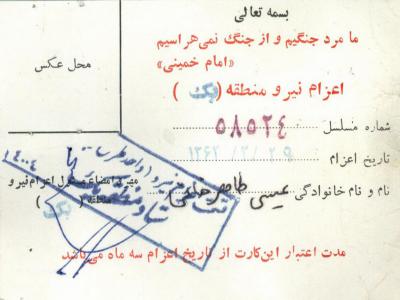 بسمه تعالی
ما مرد جنگیم و از جنگ نمی هراسیم
«امام خمینی»
محل عکس
اعزام نیرو منطقه ( یک )
شماره مسلسل ۵۸۵۲۴
تاریخ اعزام ۱۳۶۲/۲/۲۹
نام و نام خانوادگی عیسی
مهر و امضاء مسئول اعزام نیرو
منطقه ( یک )
مدت اعتبار این کارت از تاریخ اعزام سه ماه می باشد